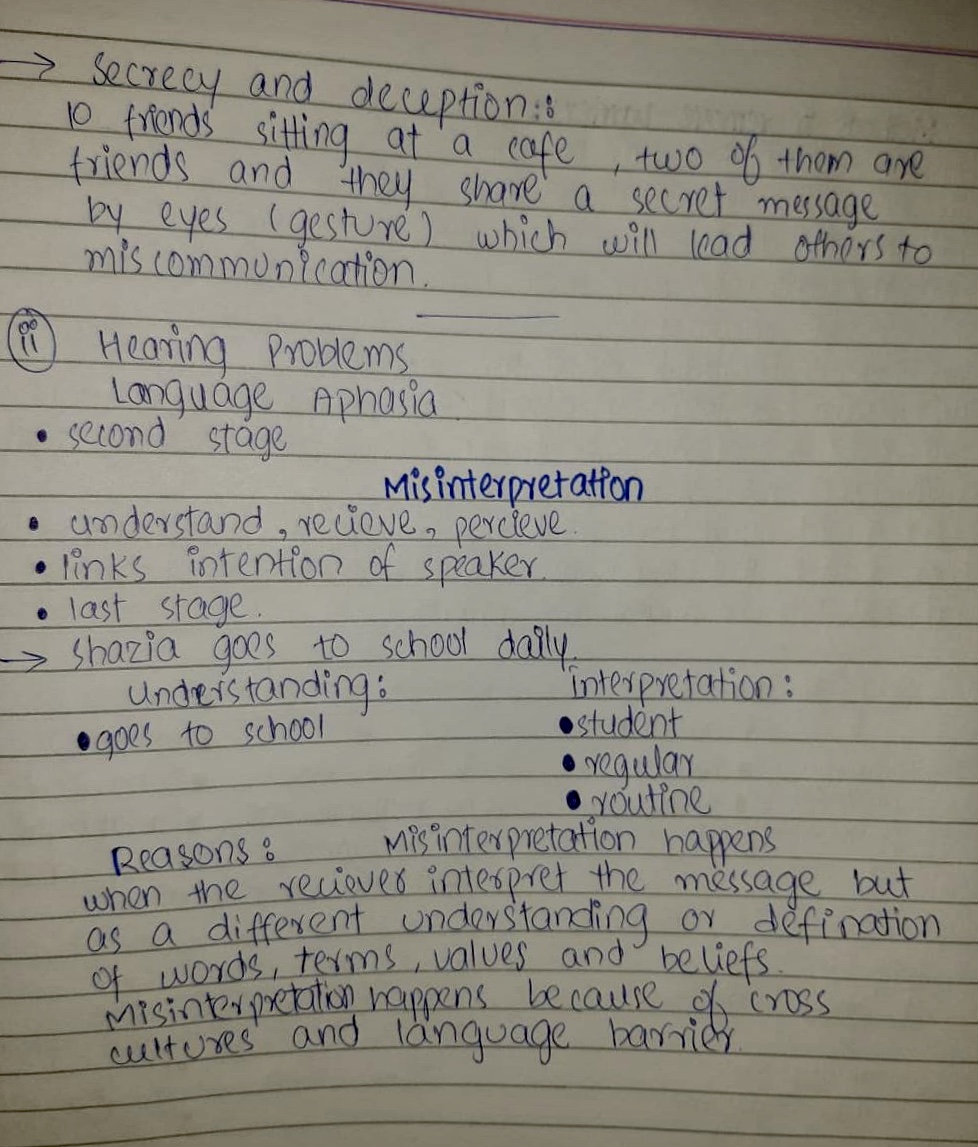 → Secrecy and deception::
10 friends sitting at a cafe, two of them are
friends and they share a secret message
by eyes (gesture) which will lead others to
miscommunication.
ii Hearing Problems
Language Aphasia
• second stage
Misinterpretation
• understand, recieve, percieve.
• links intention of speaker.
• last stage.
→ Shazia goes to school daily.
Understanding: interpretation:
• goes to school • student
• regular
• routine
Reasons: Misinterpretation happens
when the reciever interpret the message but
as a different understanding or defination
of words, terms, values and beliefs.
Misinterpretation happens because of cross
cultures and language barrier.